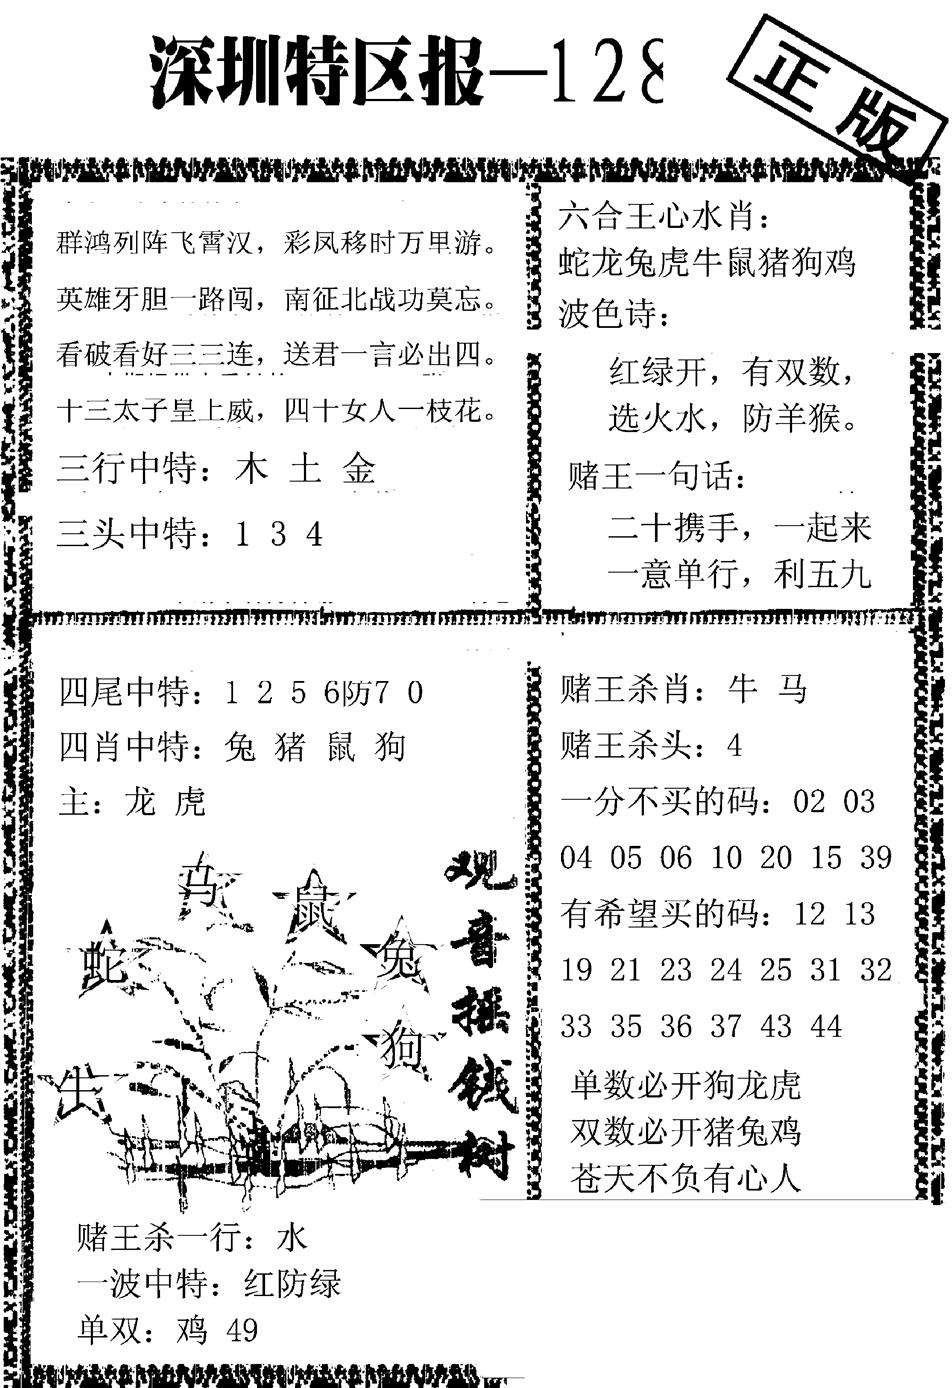 深圳特区报—128
正版
群鸿列阵飞霄汉，彩凤移时万里游。
英雄牙胆一路闯，南征北战功莫忘。
看破看好三三连，送君一言必出四。
十三太子皇上威，四十女人一枝花。
三行中特：木 土 金
三头中特：1 3 4
六合王心水肖：
蛇龙兔虎牛鼠猪狗鸡
波色诗：
红绿开，有双数，
选火水，防羊猴。
赌王一句话：
二十携手，一起来
一意单行，利五九
四尾中特：1 2 5 6防7 0
四肖中特：兔 猪 鼠 狗
主：龙 虎
马
鼠
蛇
兔
狗
牛
观音摇钱树
赌王杀一行：水
一波中特：红防绿
单双：鸡 49
赌王杀肖：牛 马
赌王杀头：4
一分不买的码：02 03
04 05 06 10 20 15 39
有希望买的码：12 13
19 21 23 24 25 31 32
33 35 36 37 43 44
单数必开狗龙虎
双数必开猪兔鸡
苍天不负有心人